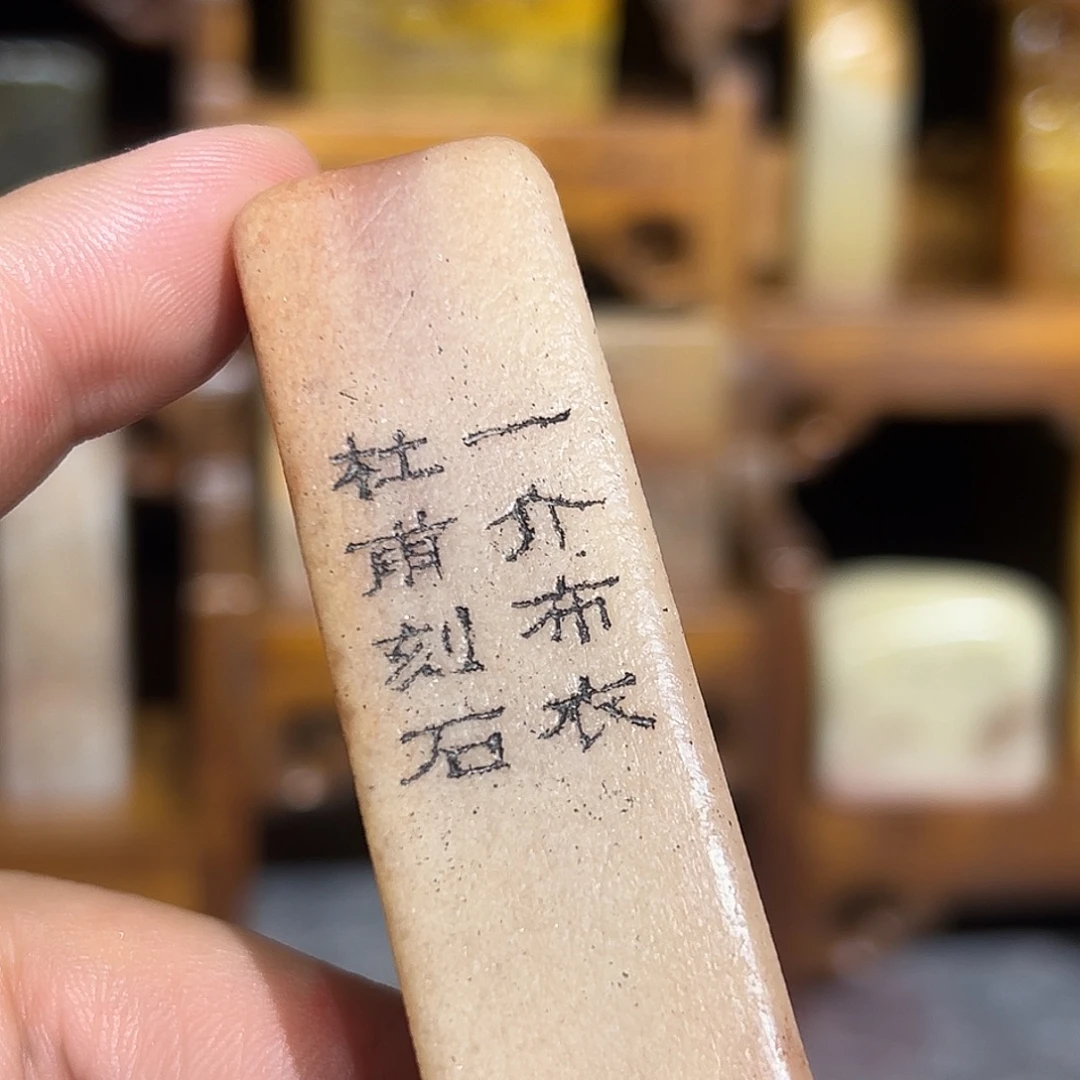 一介布衣
杜甫刻石